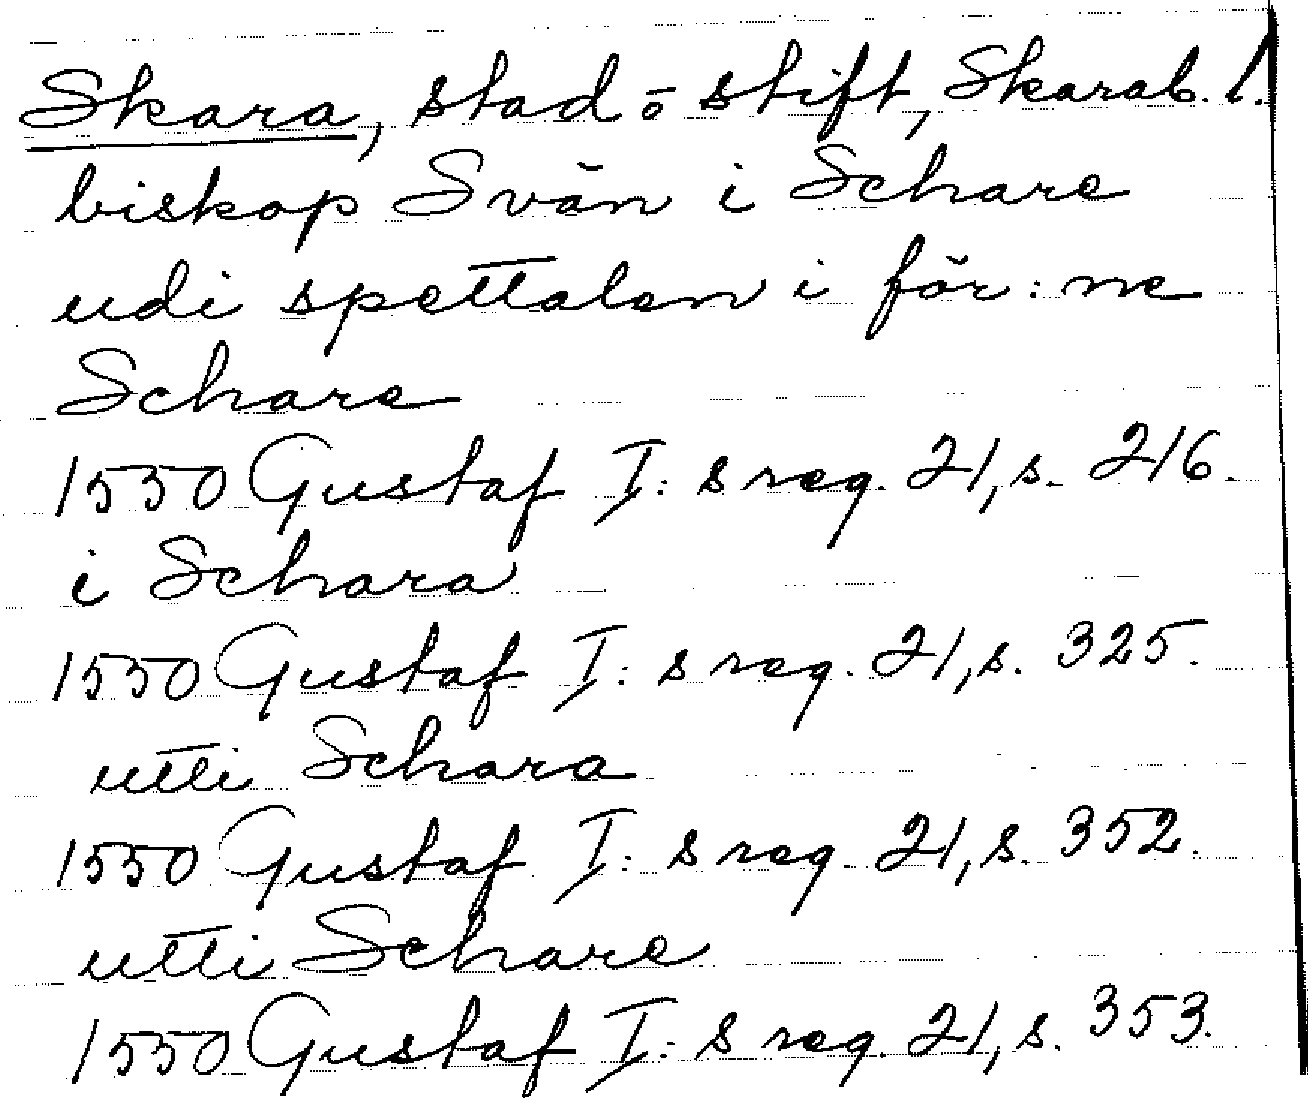 Skara, stad o stift, Skarab. l.
biskop Svän i Schare
udi spettalen i för:ne
Schare
1550 Gustaf I:s reg. 21, s. 216.
i Schara
1550 Gustaf I:s reg. 21, s. 325.
utti Schara
1550 Gustaf I:s reg. 21, s. 352.
utti Schare
1550 Gustaf I:s reg. 21, s. 353.